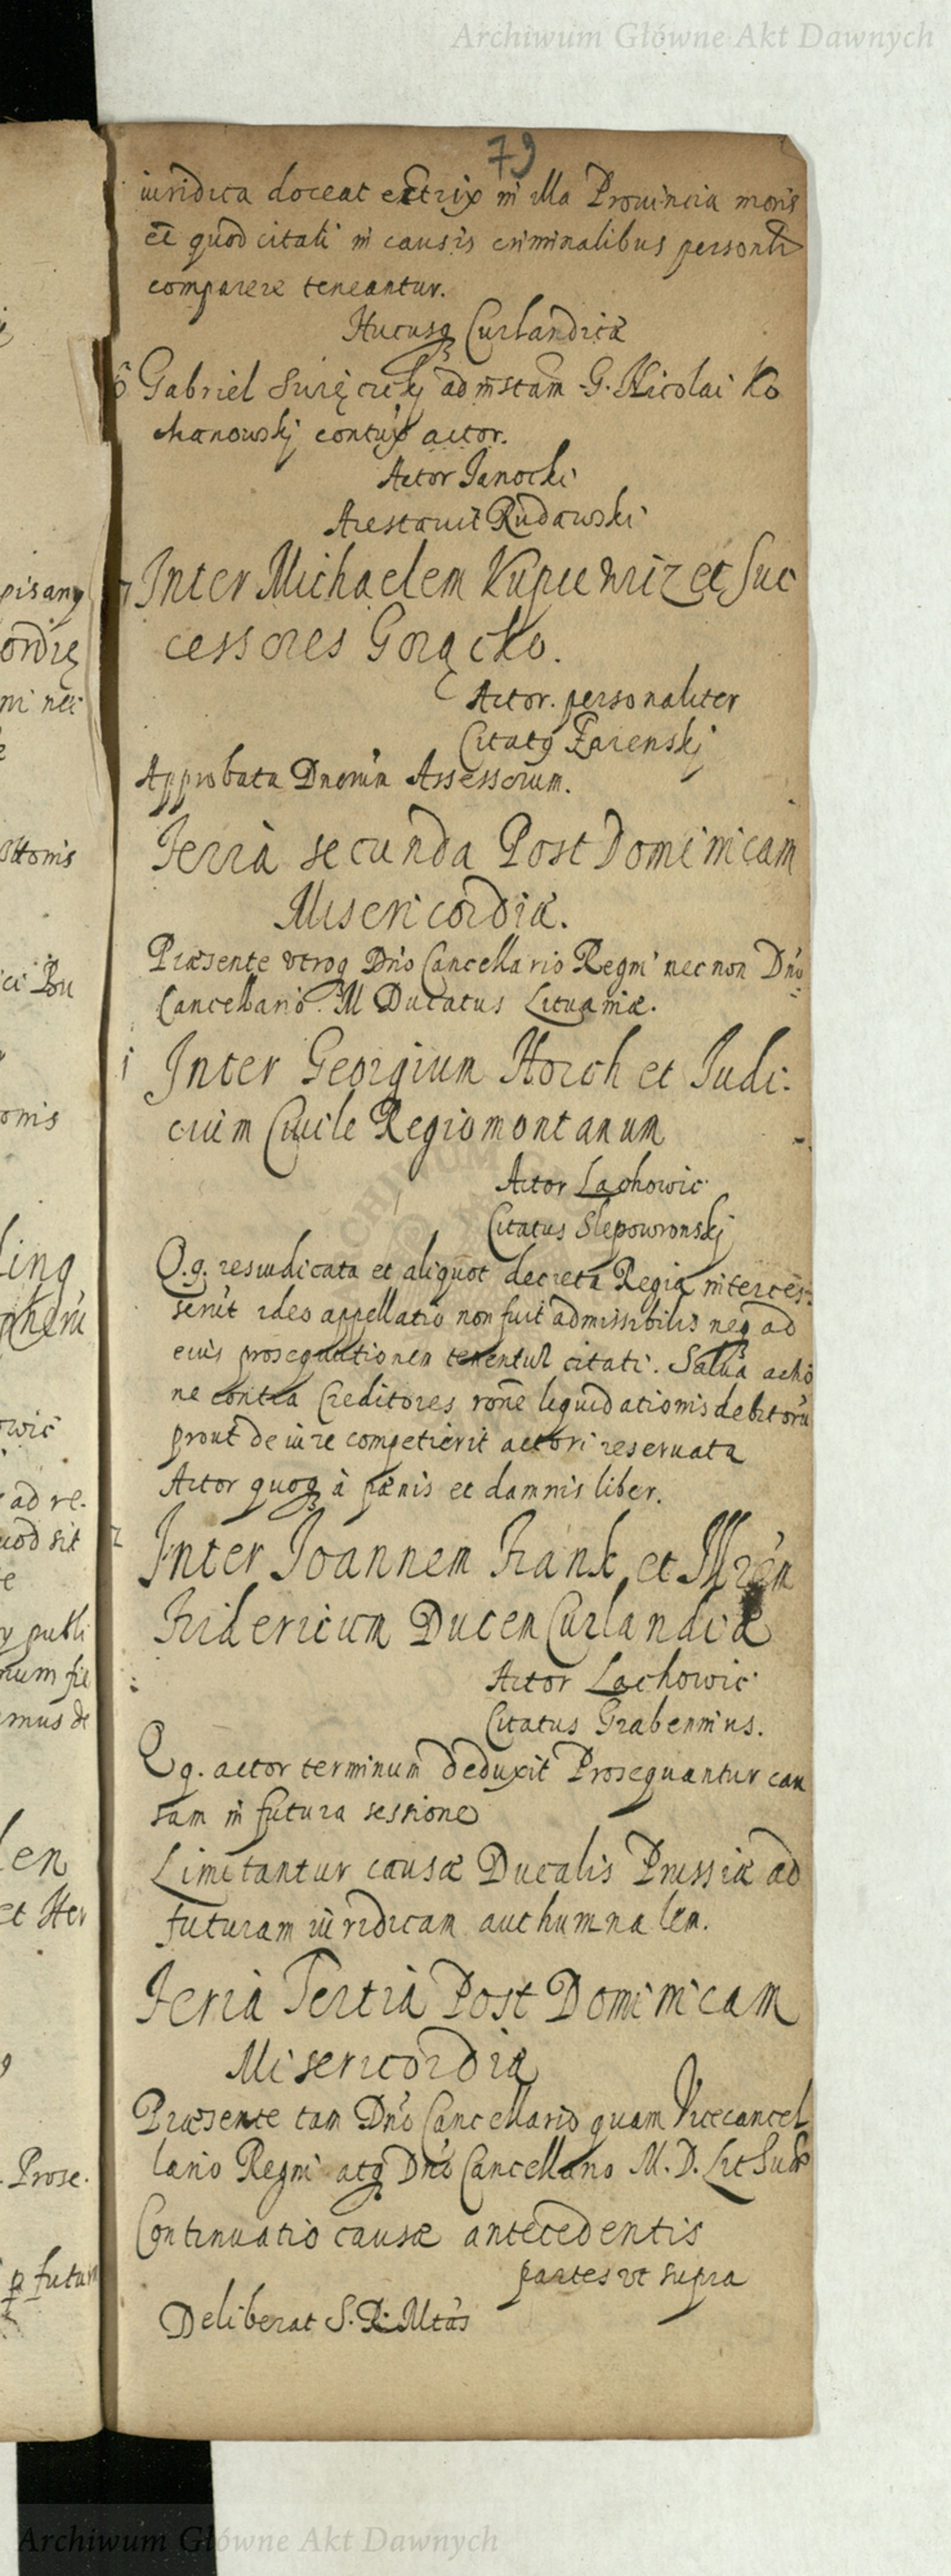 Archiwum Główne Akt Dawnych
79
iuridica doceat actrix in illa Prouincia moris
et quod citati in causis criminalibus personlr
comparere teneantur.
Hucusq Curlandica
6 Gabriel Święcickj ad instam G. Nicolai Ko
chanowskj contux actor.
Actor Janocki
Arestauit Rudawski
7 Inter Michaelem Kupcewicz et Suc
cessores Gorącko.
Actor personaliter
Citatq Zarenskj
Approbata Dnorum Assessorum.
Feria secunda Post Dominicam
Misericordiæ.
Præsente vtroq Dno Cancellario Regni nec non Dno
Cancellario M Ducatus Lituaniæ.
1 Inter Georgium Horch et Judi:
cium Ciuile Regiomontanum
Actor Lachowic
Citatus Slepowronskj
Q.q. resiudicata et aliquot decreta Regia interces:
serut ideo appellatio non fuit admissibilis neq ad
eius prosequutionem tenentur citati. Salua actio
ne contra Creditores rone liquidationis debitoru
prout de iure competierit actori reseruata
Actor quoq à pænis et damnis liber.
2 Inter Joannem Frank et Illrem
Fridericum Ducem Curlandiæ
Actor Lachowic
Citatus Grabennius.
Q q. actor terminum deduxit Prosequantur cau
sam in futura sessione
Limitantur causæ Ducalis Prussiæ ad
futuram iuridicam authumnalem.
Feria Tertia Post Dominicam
Misericordiæ
Præsente tam Dno Cancellario quam Vicecancel
lario Regni atq Dno Cancellario M. D. Lit
Continuatio causæ antecedentis
partes vt supra
Deliberat S. R. Mtas
Archiwum Główne Akt Dawnych